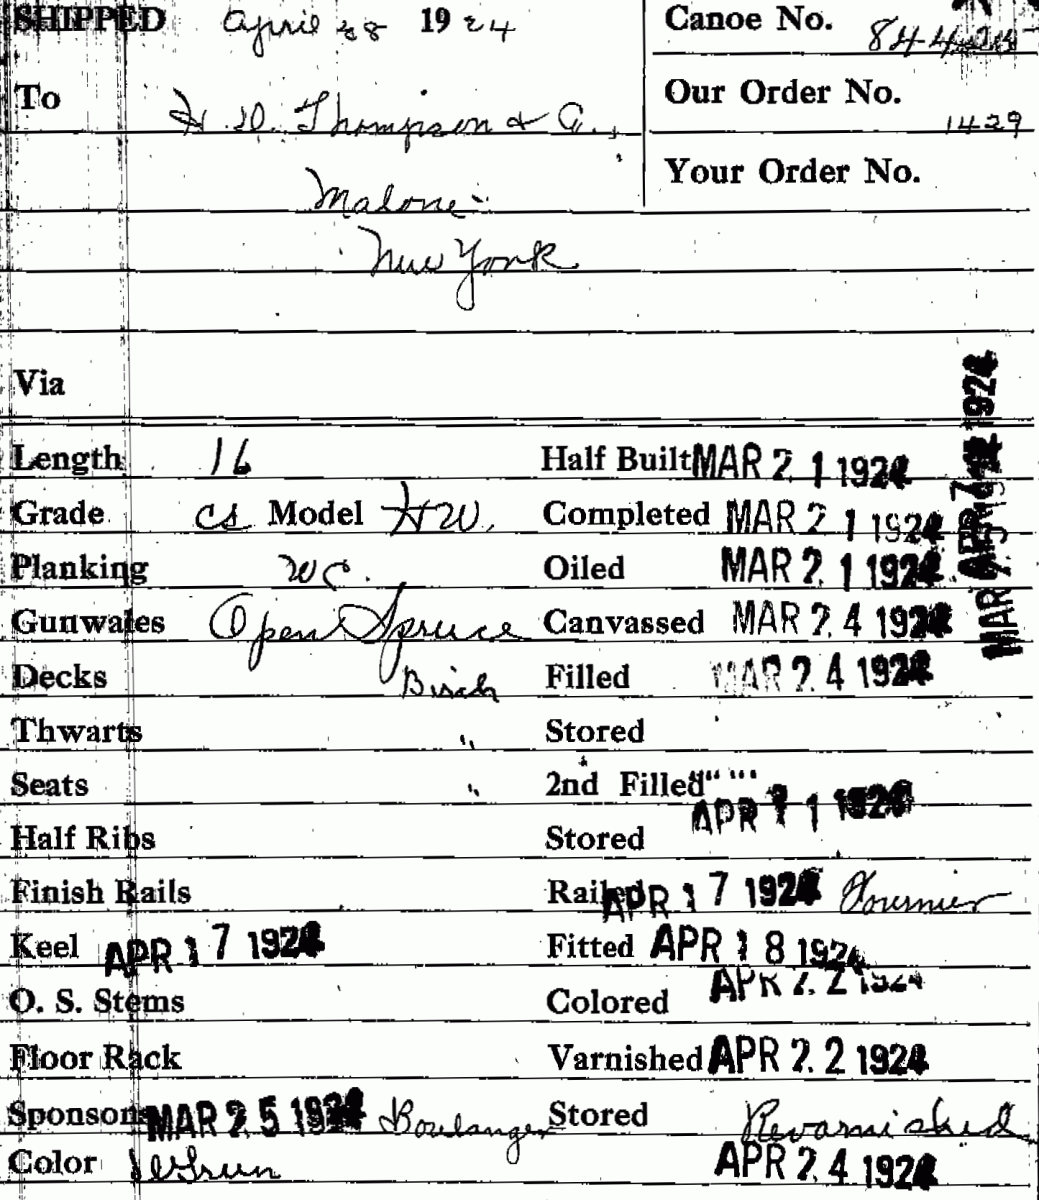 SHIPPED April 28 1924 Canoe No.
To H. D. Thompson & Co., Our Order No. 1429
Malone Your Order No.
New York
Via
Length 16 Half Built MAR 21 1924
Grade CS Model HW. Completed MAR 21 1924
Planking WC. Oiled MAR 21 1924
Gunwales Open Spruce Canvassed MAR 24 1924
Decks Birch Filled MAR 24 1924
Thwarts " Stored
Seats " 2nd Filled
Half Ribs Stored APR 11 1924
Finish Rails Railed APR 17 1924 Fournier
Keel APR 17 1924 Fitted APR 18 1924
O. S. Stems Colored APR 22 1924
Floor Rack Varnished APR 22 1924
Sponsons MAR 25 1924 Boulanger Stored Revarnished
Color APR 24 1924